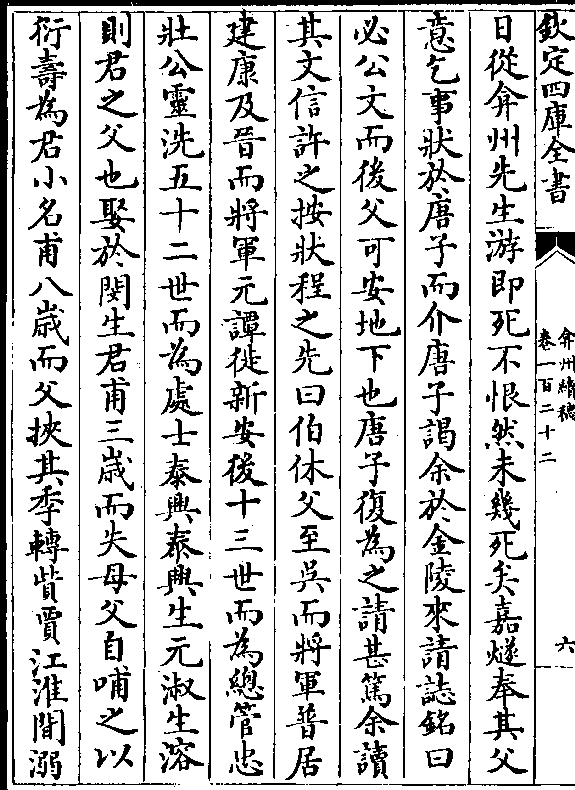 欽定四庫全書
弇州續稿
卷一百二十二
六
日從弇州先生游即死不恨然未幾死矣嘉燧奉其父
意乞事狀於唐子而介唐子謁余於金陵來請誌銘曰
必公文而後父可安地下也唐子復為之請甚篤余讀
其文信許之按狀程之先曰伯休父至吳而將軍普居
建康及晉而將軍元譚徙新安後十三世而為總管忠
壯公靈洗五十二世而為處士泰興泰興生元淑生溶
則君之父也娶於閔生君甫三歲而失母父自哺之以
衍壽為君小名甫八歲而父挾其季轉貲賈江淮間溺